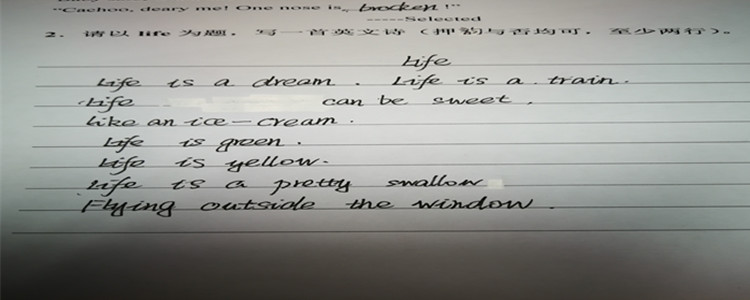 "Cachoo, deary me! One nose is, brocken !"
-----Selected
2. 请以 life 为题，写一首英文诗（押韵与否均可，至少两行）。
Life
Life is a dream . Life is a train.
Life can be sweet ,
like an ice-cream .
Life is green .
Life is yellow.
Life is a pretty swallow
Flying outside the window .